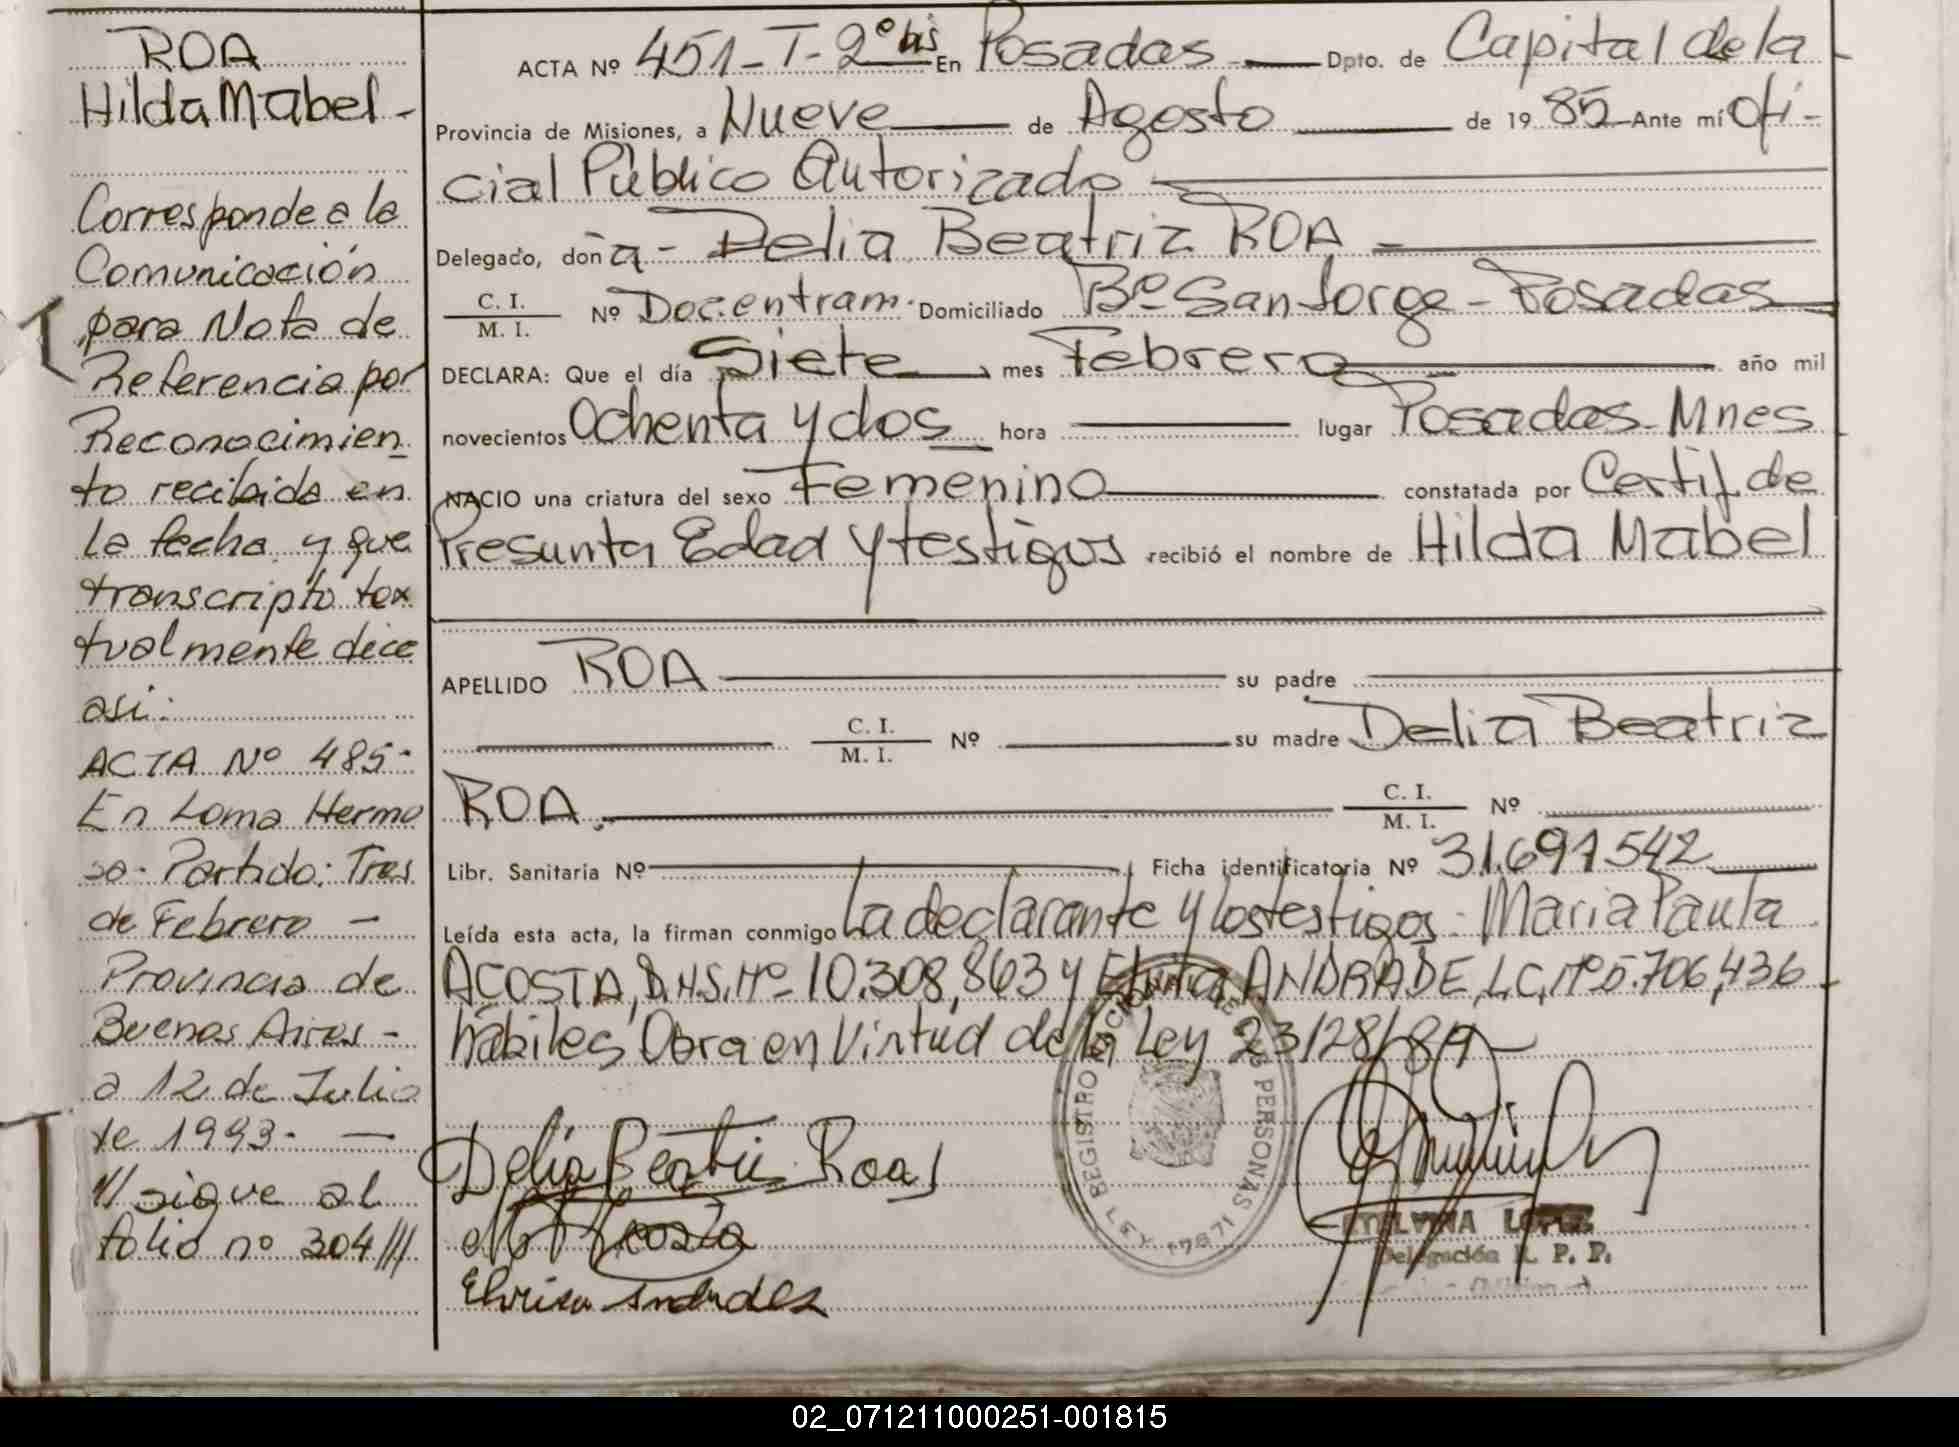 ROA
Hilda Mabel -
Corresponde a la
Comunicación
para Nota de
Referencia por
Reconocimien
to recibida en
la fecha y que
transcripto tex
tualmente dice
asi:
ACTA Nº 485-
En Loma Hermo
sa- Partido: Tres
de Febrero -
Provincia de
Buenos Aires -
a 12 de Julio
de 1993.-
/// sigue al
folio nº 304 ///
ACTA Nº 451-T-2º bis En Posadas Dpto. de Capital de la
Provincia de Misiones, a Nueve de Agosto de 1985 Ante mí Ofi-
cial Público Autorizado
Delegado, doña - Delia Beatriz ROA
C. I. / M. I. Nº Doc. en tram. Domiciliado Bº San Jorge - Posadas
DECLARA: Que el día Siete mes Febrero año mil
novecientos Ochenta y dos hora lugar Posadas Mnes
NACIO una criatura del sexo Femenino constatada por Certif de
Presunta Edad y testigos recibió el nombre de Hilda Mabel
APELLIDO ROA su padre
C. I. / M. I. Nº su madre Delia Beatriz
ROA C. I. / M. I. Nº
Libr. Sanitaria Nº Ficha identificatoria Nº 31.691.542
Leída esta acta, la firman conmigo La declarante y los testigos: Maria Paula
ACOSTA, D.N.I. Nº 10.308,863 y ANDRADE, L.C. Nº 5.706,436
hábiles Obra en Virtud de la Ley 23128/84
Delia Beatriz Roa
REGISTRO DE PERSONAS
LEY 17671
ETELVINA LOPEZ
Delegación R. P. P.
02_071211000251-001815